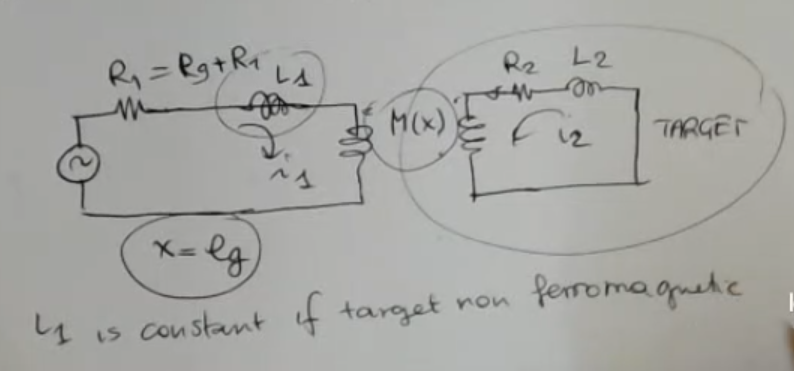 R1 = Rg + R1
L1
i1
M(x)
R2
L2
i2
TARGET
x = lg
L1 is constant if target non ferromagnetic